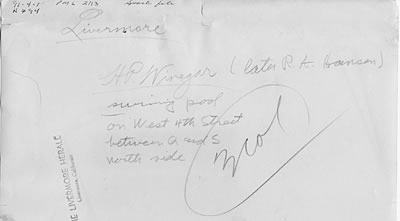 Livermore
H P Winegar (later P. H. Hansen)
swimming pool
on West 4th Street
between Q and S
north side
2 col
THE LIVERMORE HERALD
Livermore, California